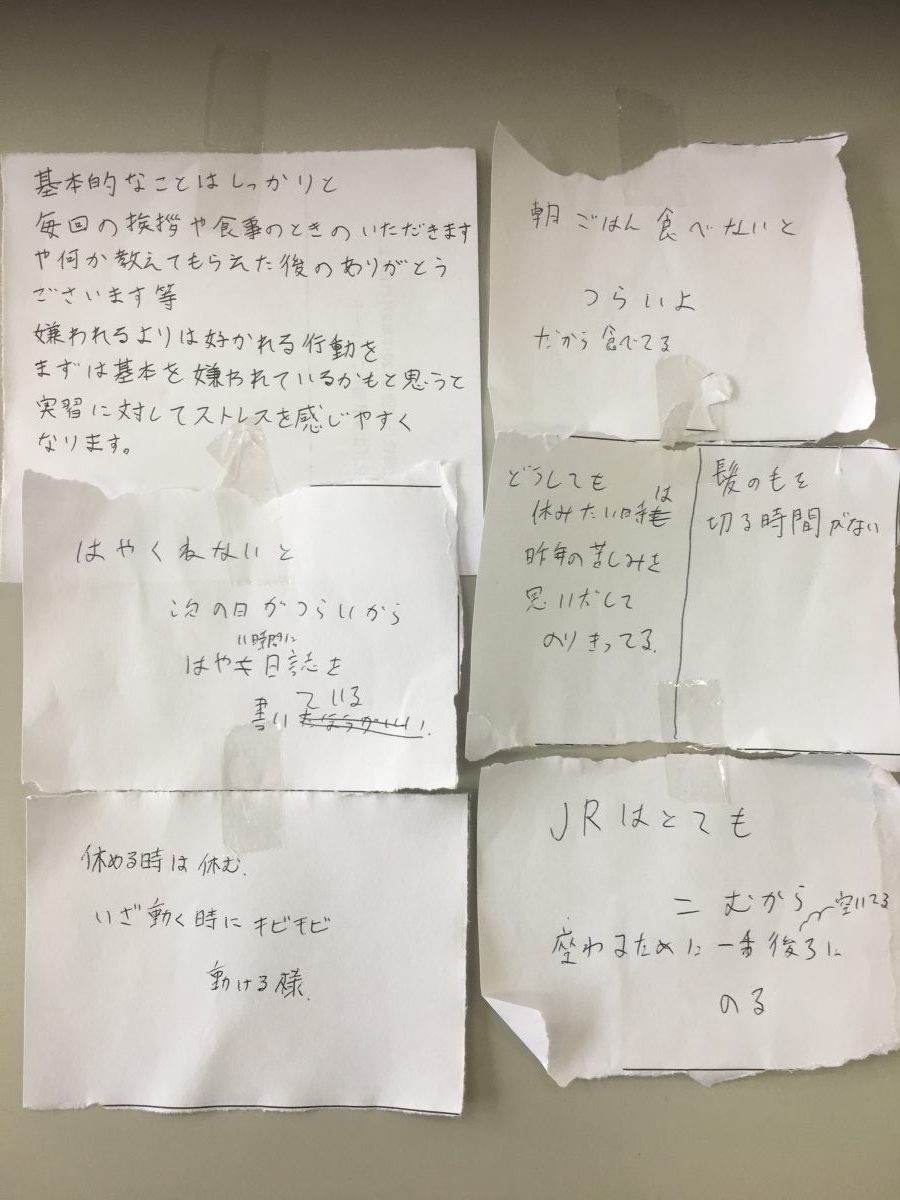 基本的なことはしっかりと
毎回の挨拶や食事のときのいただきます
や何か教えてもらえた後のありがとう
ございます等
嫌われるよりは好かれる行動を
まずは基本を嫌われているかもと思うと
実習に対してストレスを感じやすく
なります。
はやくねないと
次の日がつらいから
い時間に
はや日誌を
ている
書い
休める時は休む.
いざ動く時にキビキビ
動ける様.
朝ごはん食べないと
つらいよ
だから食べてる
どうしても
は
休みたい時
昨年の苦しみを
思いだして
のりきってる.
髪の毛を
切る時間がない
JRはとても
こむから
空いてる
座わるために一番後ろに
のる